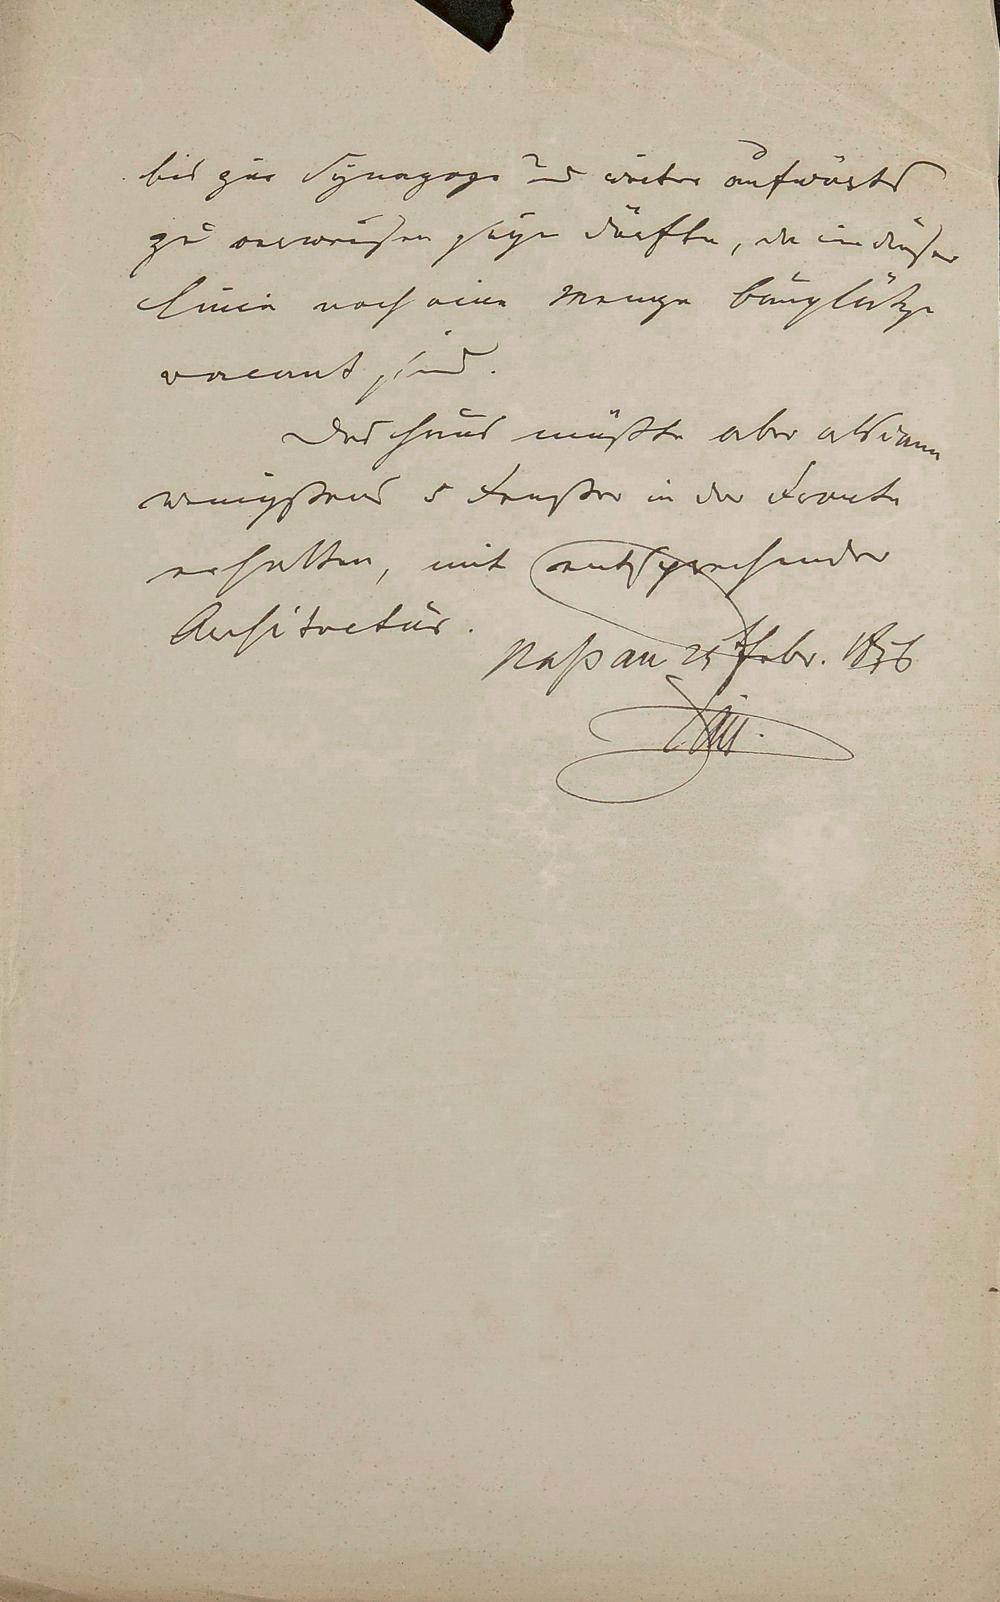 bis zur Synagoge und weiter aufwärts
zu verweisen seyn dürfte, da in dieser
Linie noch eine Menge Bauplätze
vacant sind.
Das Haus müßte aber alsdann
wenigstens 5 Fenster in der Fronte
erhalten, mit entsprechender
Architectur.
Nassau 25 Febr. 1856